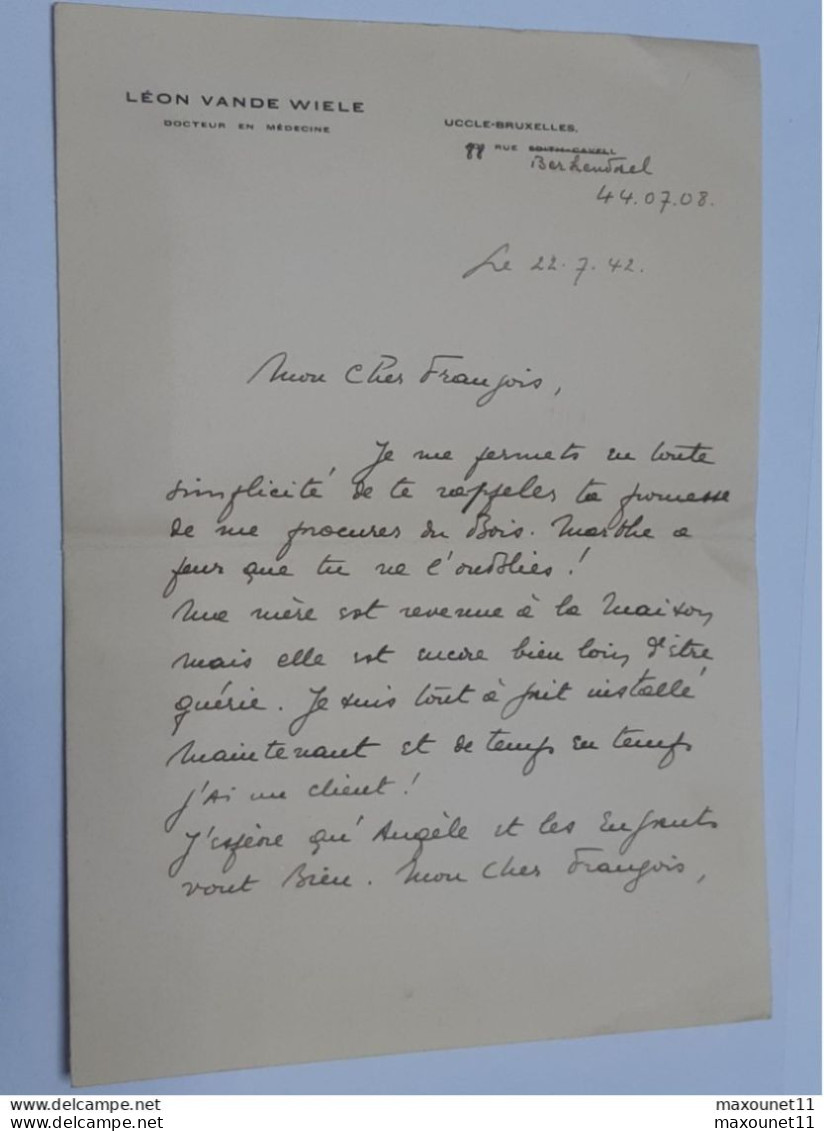 LÉON VANDE WIELE
DOCTEUR EN MÉDECINE
UCCLE-BRUXELLES,
RUE EDITH CAVELL
Berkendael
44.07.08.
Le 22.7.42.
Mon Cher François,
Je me permets en toute
simplicité de te rappeler ta promesse
de me procurer du Bois. Marthe a
peur que tu ne l'oublies!
Ma mère est revenue à la Maison
mais elle est encore bien loin d'être
guérie. Je suis tout à fait installé
maintenant et de temps en temps
j'ai un client!
J'espère qu'Angèle et les Enfants
vont Bien. Mon Cher François,
delcampe.net
maxounet11
delcampe.net
maxounet11